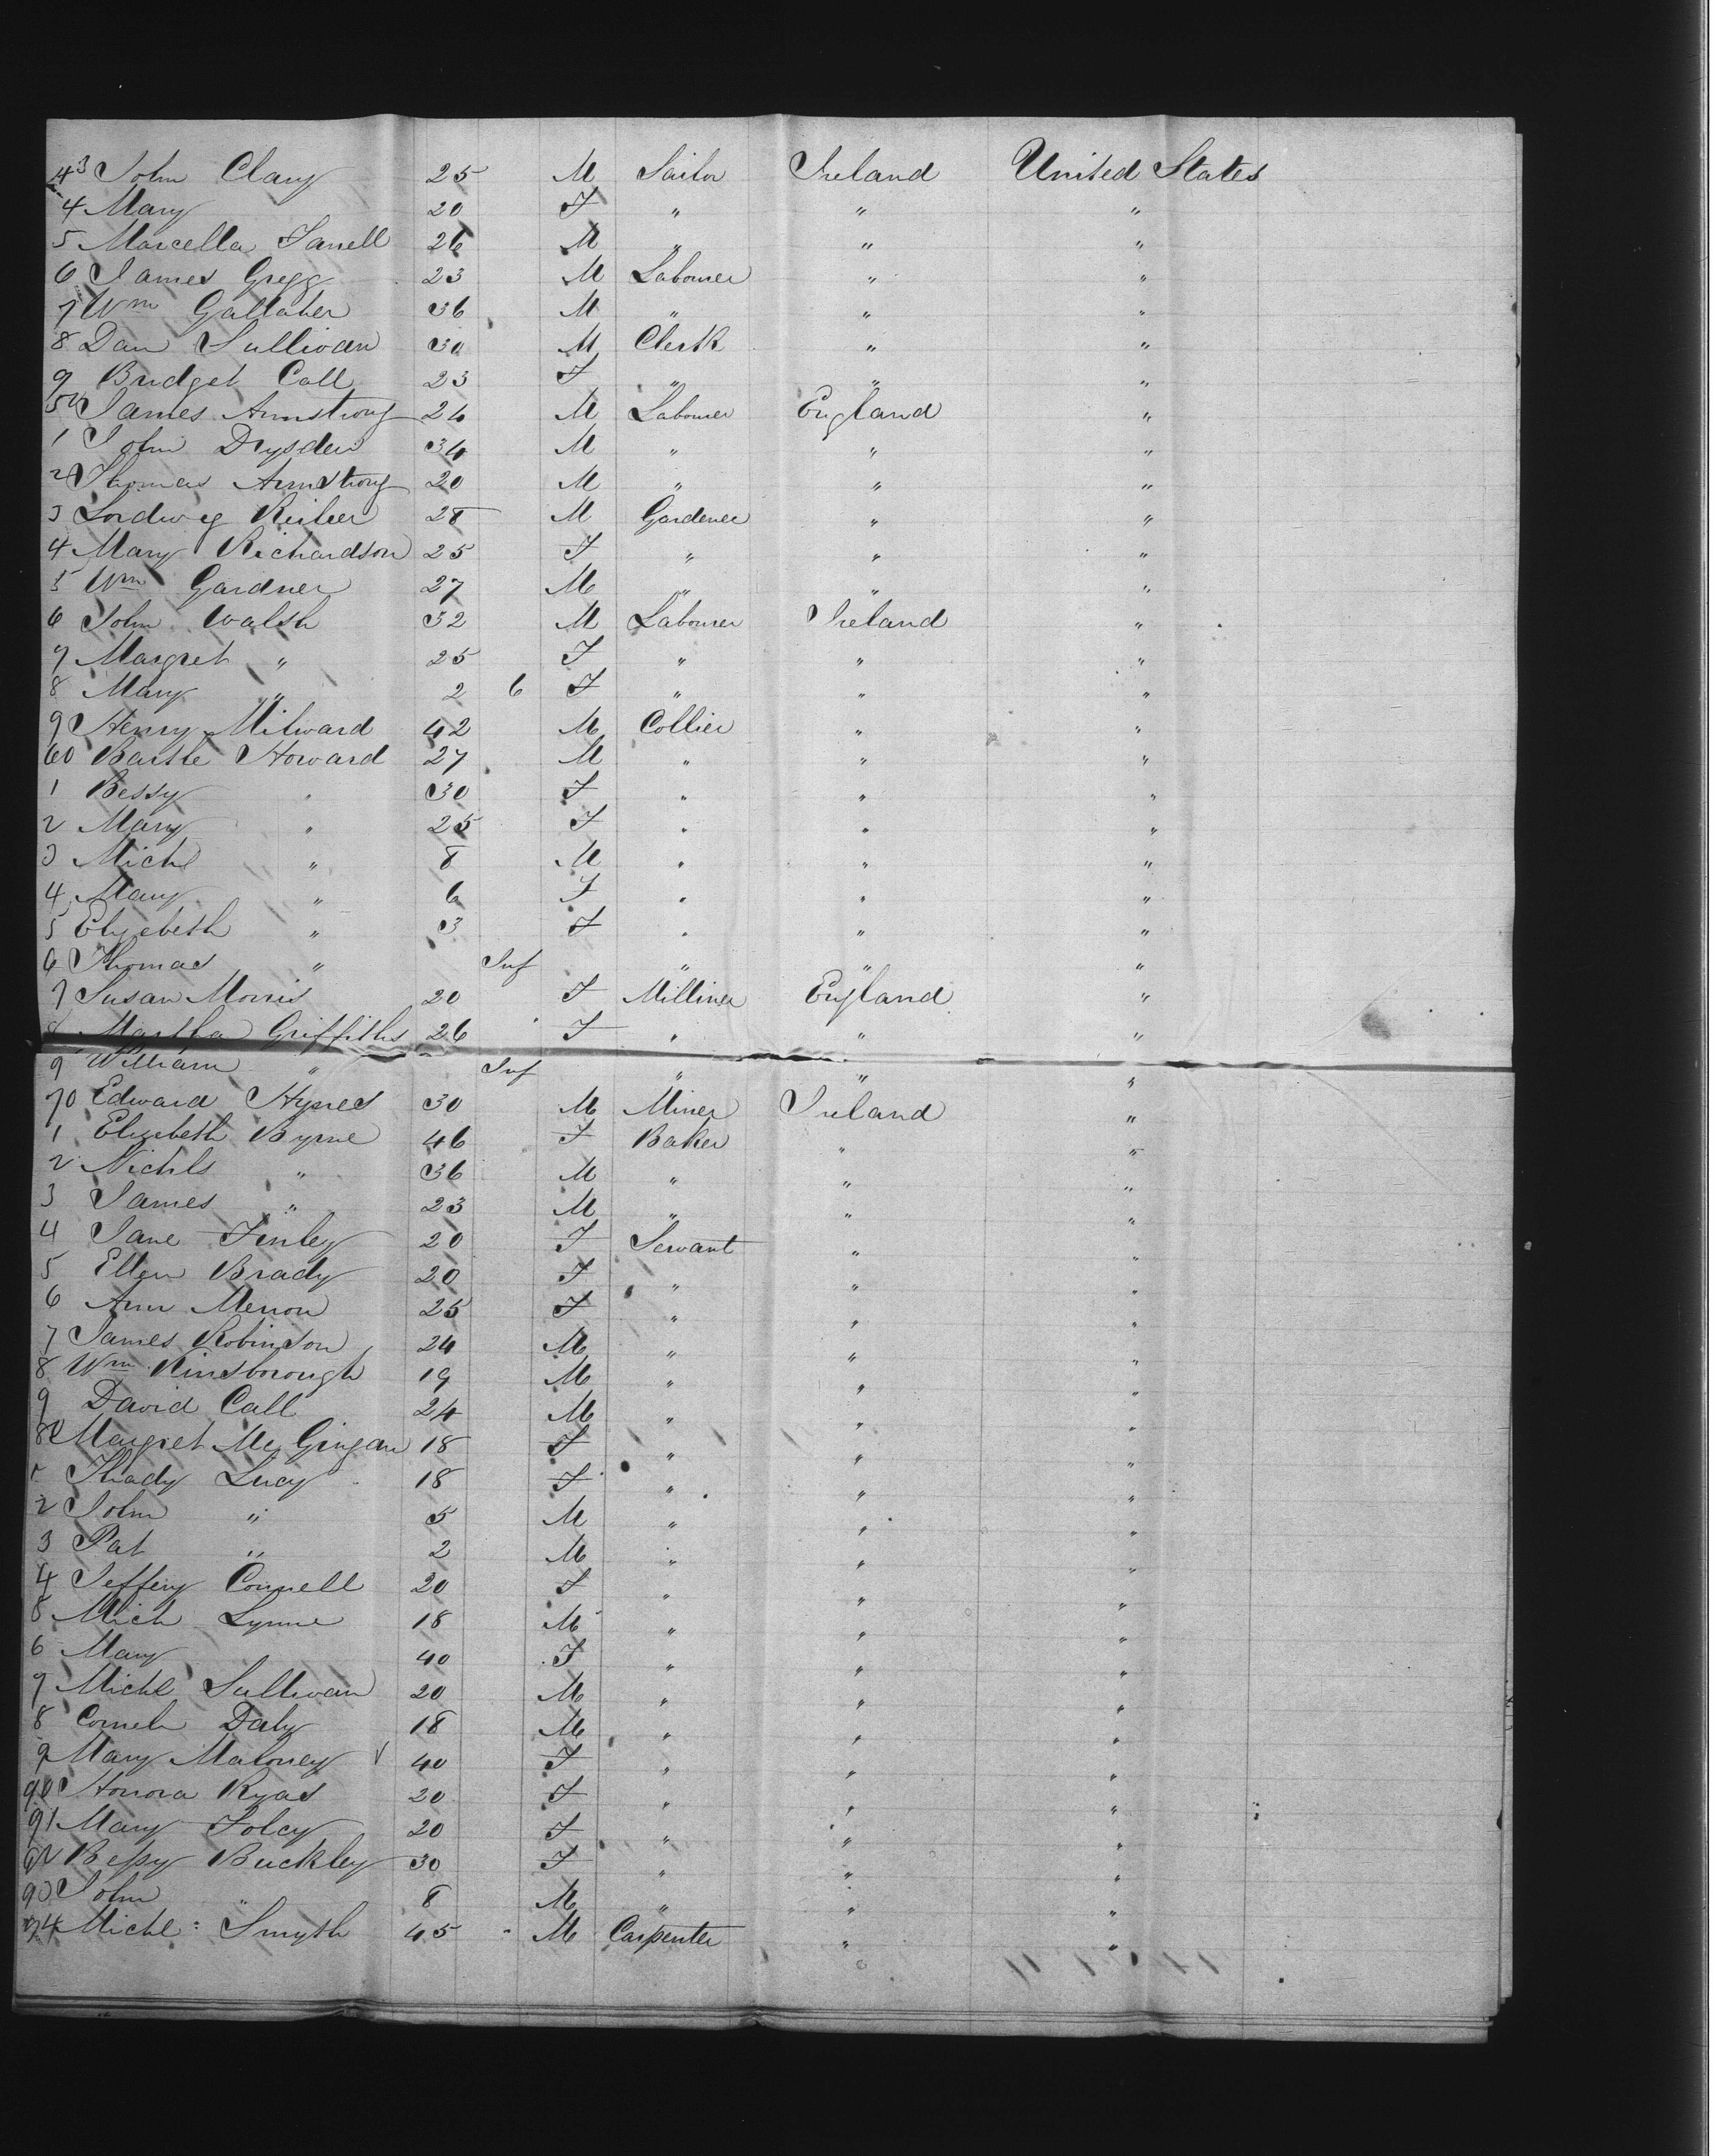 43 John Clary 25 M Sailor Ireland United States
4 Mary 20 F " " "
5 Marcella Farrell 26 M " " "
6 James Gregg 23 M Labourer " "
7 Wm Gallaher 36 M " " "
8 Dan Sullivan 30 M Clerk " "
9 Bridget Call 23 F " " "
50 James Armstrong 24 M Labourer England "
1 John Drysden 34 M " " "
2 Thomas Armstrong 20 M " " "
3 Lordwig 28 M Gardener " "
4 Mary Richardson 25 F " " "
5 Wm Gardner 27 M " " "
6 John Walsh 32 M Labourer Ireland "
7 Margret " 25 F " " "
8 Mary " 2 6 F " " "
9 Henry Milward 42 M Collier " "
60 Bartle Howard 27 M " " "
1 Bessy " 30 F " " "
2 Mary " 25 F " " "
3 Michl " 8 M " " "
4 Mary " 6 F " " "
5 Elizebeth " 3 F " " "
6 Thomas " Inf " " "
7 Susan Morris 20 F Milliner England "
8 Martha Griffiths 26 F " " "
9 William " Inf " " "
70 Edward Hynes 30 M Miner Ireland "
1 Elizebeth Byrne 46 F Baker " "
2 Nichls " 36 M " " "
3 James " 23 M " " "
4 Jane Finley 20 F Servant " "
5 Ellen Brady 20 F " " "
6 Ann Menon 25 F " " "
7 James Robinson 24 M " " "
8 Wm Kinsborough 19 M " " "
9 David Call 24 M " " "
80 Margret Mc Gingan 18 F " " "
1 Thady Lucy 18 F " " "
2 John " 5 M " " "
3 Pat " 2 M " " "
4 Jeffery Connell 20 F " " "
5 Mich Lynne 18 M " " "
6 Mary 40 F " " "
7 Michl Sullivan 20 M " " "
8 Cornels Daly 18 M " " "
9 Mary Maloney 40 F " " "
90 Honora Ryas 20 F " " "
91 Mary Foley 20 F " " "
92 Bessy Buckley 30 F " " "
93 John " 8 M " " "
94 Michl: Smyth 45 " M Carpenter " "